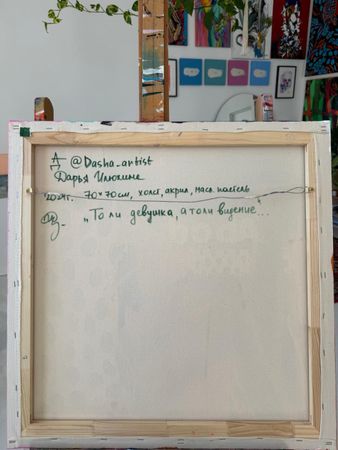 Д @Dasha_artist
Дарья Илюхина
2024г. 70×70см, холст, акрил, масл. пастель
"То ли девушка, а то ли видение...